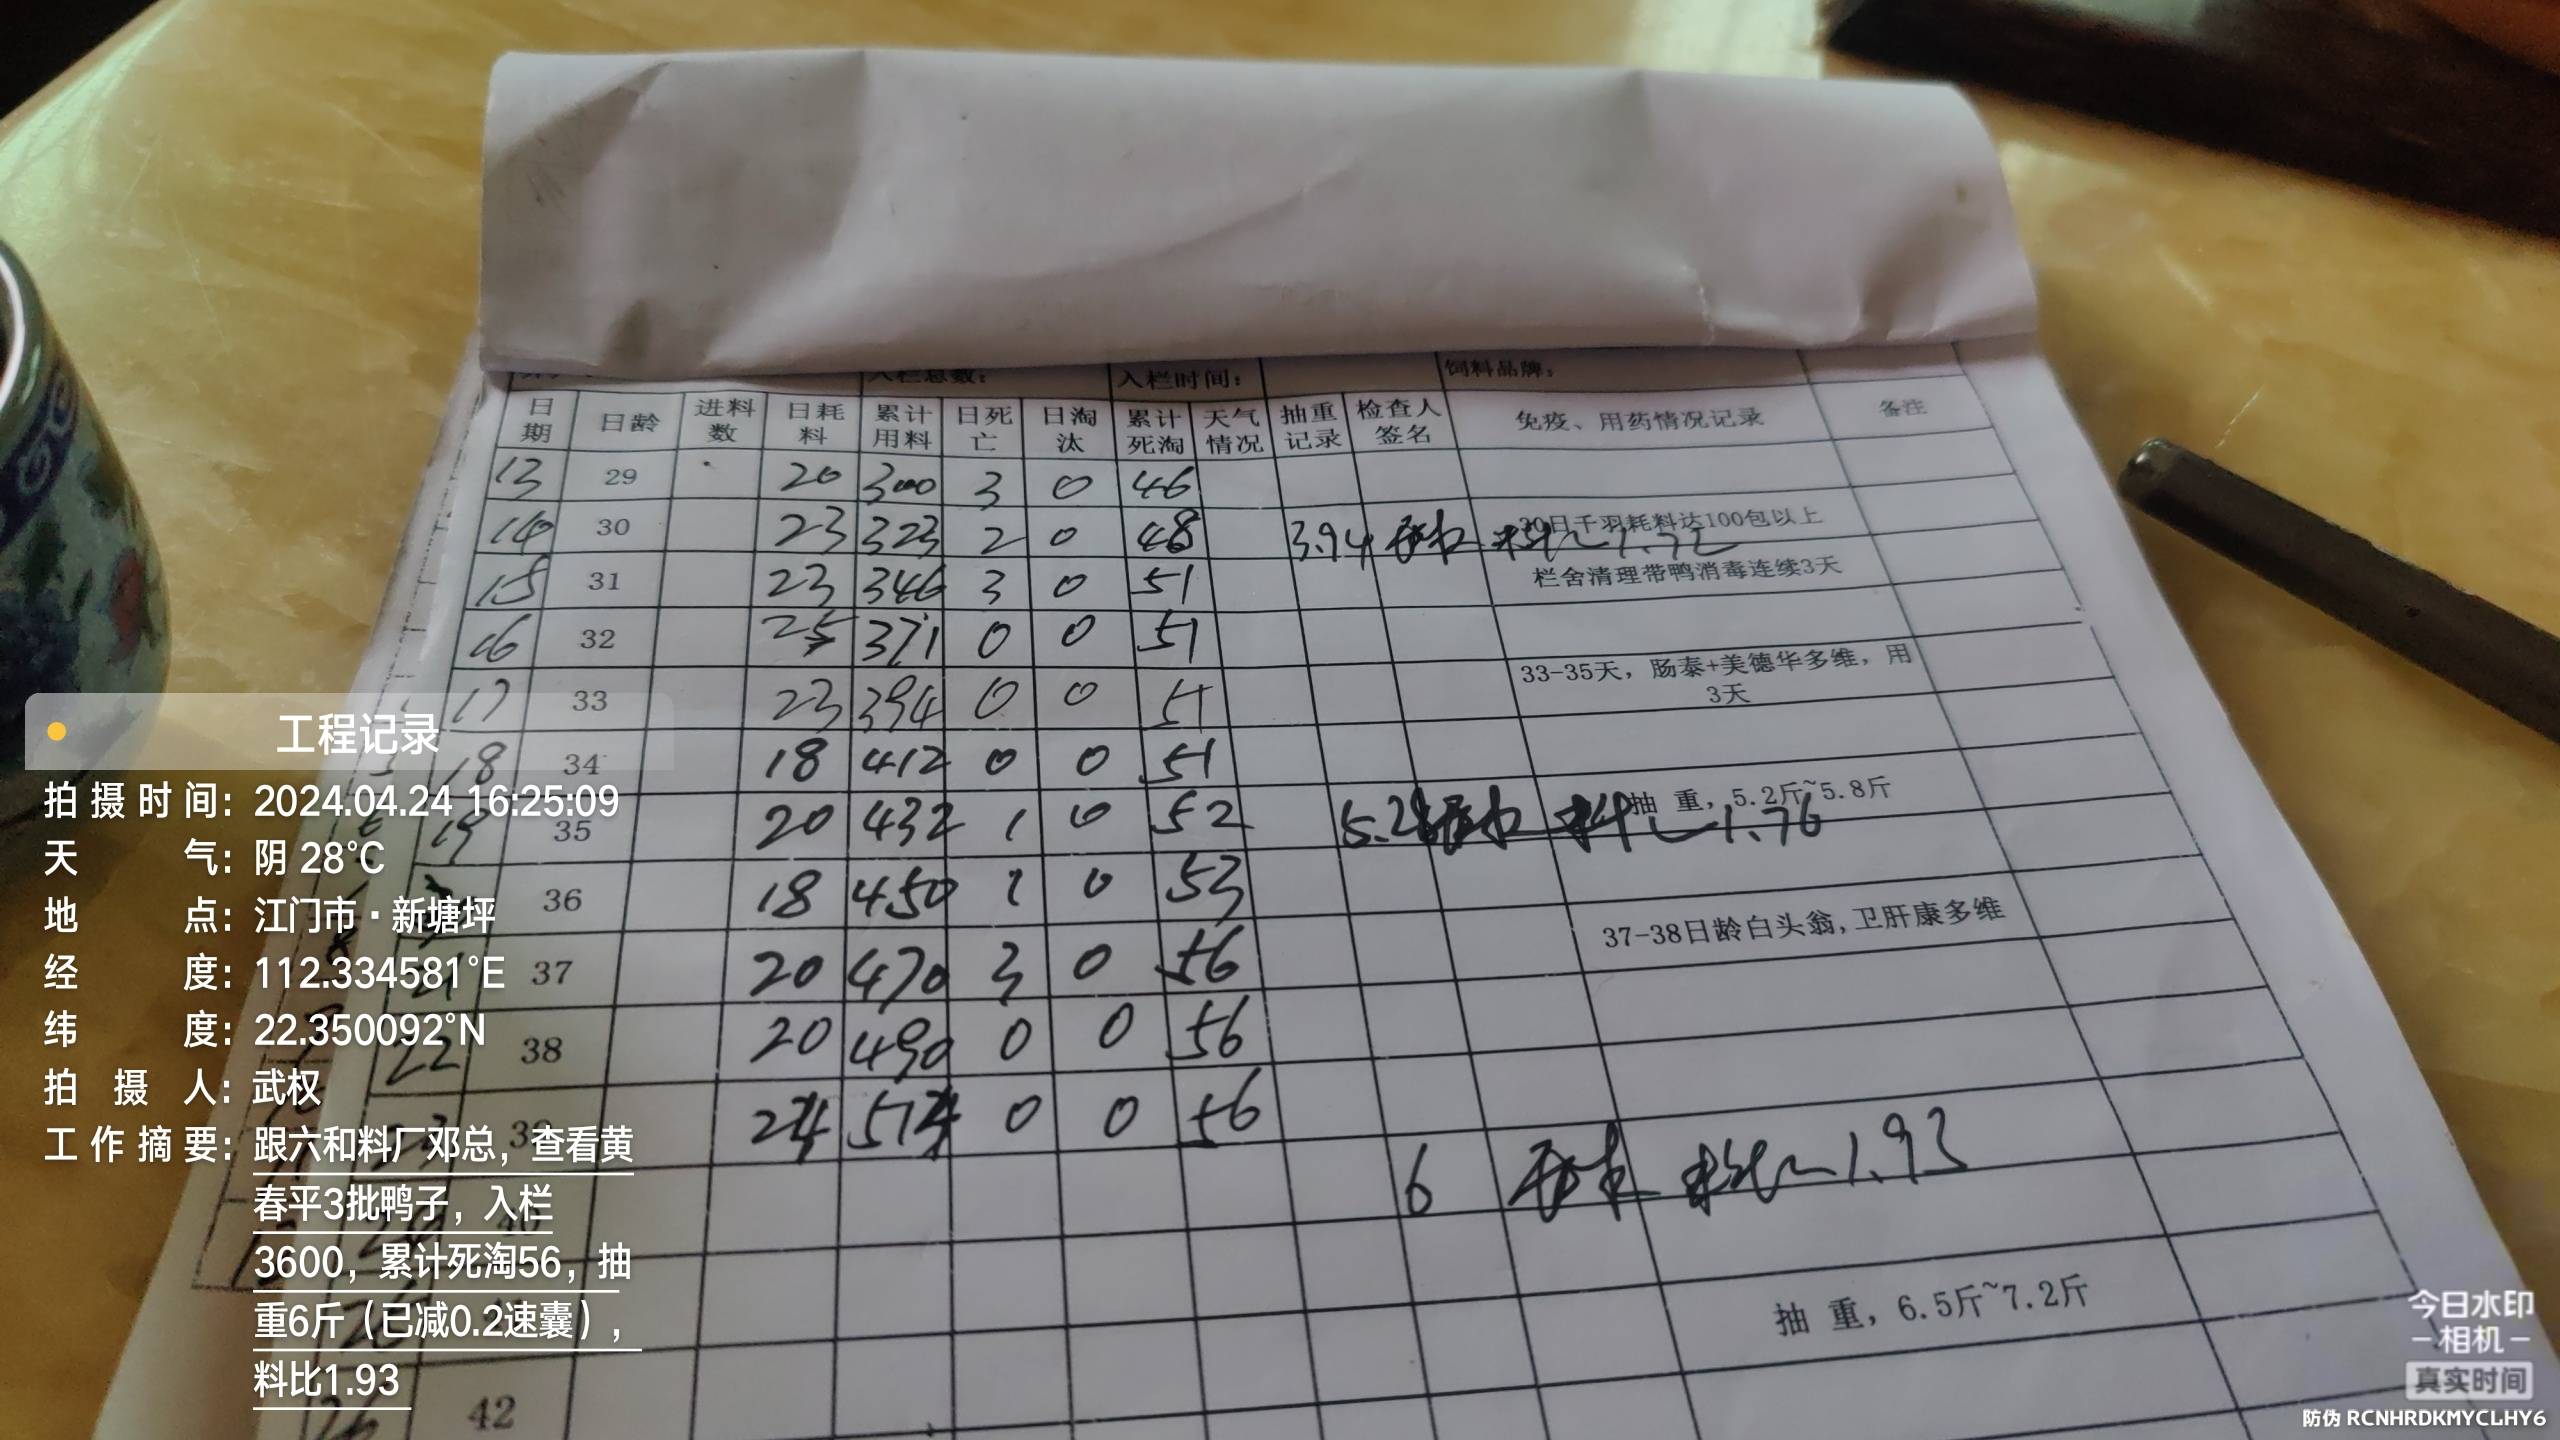 入栏总数: 入栏时间: 饲料品牌:
日期 日龄 进料数 日耗料 累计用料 日死亡 日淘汰 累计死淘 天气情况 抽重记录 检查人签名 免疫、用药情况记录 备注
13 29 20 300 3 0 46
14 30 23 323 2 0 48 3.94 30日千羽耗料达100包以上
15 31 23 346 3 0 51 栏舍清理带鸭消毒连续3天
16 32 25 371 0 0 51
17 33 23 394 0 0 51 33-35天，肠泰+美德华多维，用3天
18 34 18 412 0 0 51
19 35 20 432 1 0 52 抽 重，5.2斤~5.8斤
料比1.76
36 18 450 1 0 53
21 37 20 470 3 0 56 37-38日龄白头翁,卫肝康多维
22 38 20 490 0 0 56
23 39 24 514 0 0 56
6 料比1.93
抽 重，6.5斤~7.2斤
26 42
工程记录
拍摄时间：2024.04.24 16:25:09
天气：阴 28℃
地点：江门市·新塘坪
经度：112.334581°E
纬度：22.350092°N
拍摄人：武权
工作摘要：跟六和料厂邓总，查看黄
春平3批鸭子，入栏
3600，累计死淘56，抽
重6斤（已减0.2速囊），
料比1.93
今日水印
-相机-
真实时间
防伪 RCNHRDKMYCLHY6